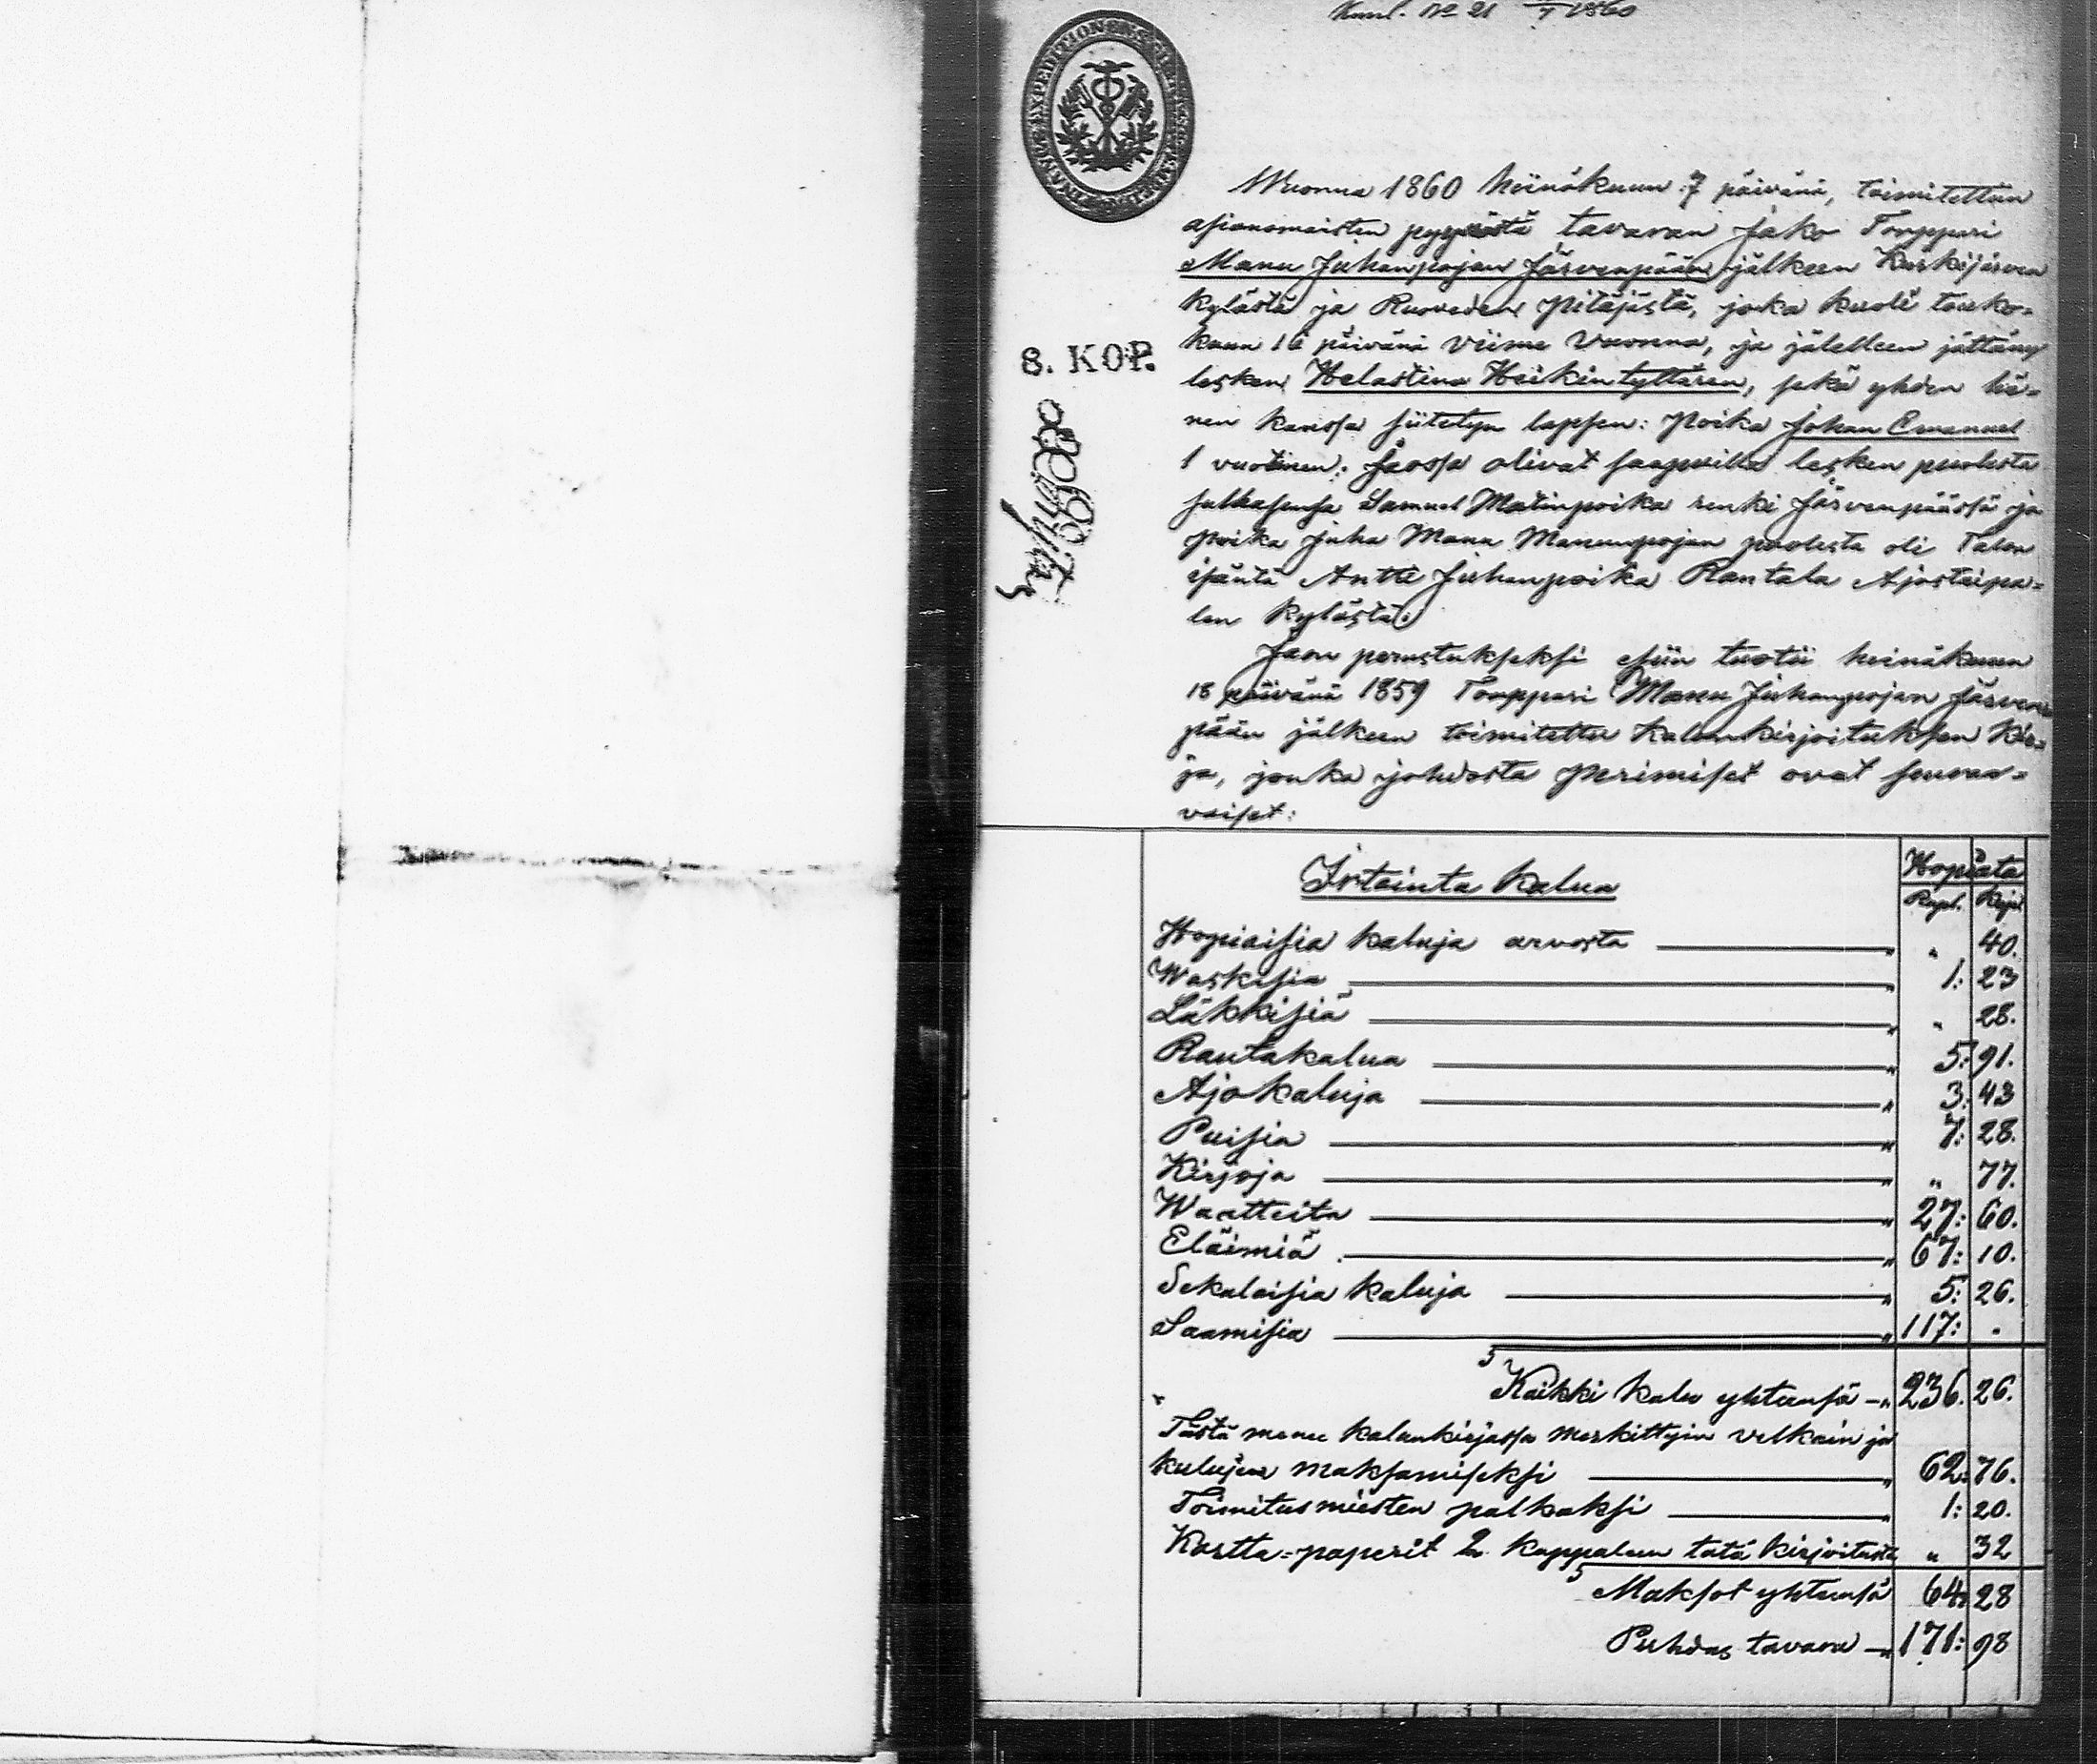 No 21 1860
Wuonna 1860 heinäkuun 7 päivänä, toimitettiin
asianomaisten pyynöstä tavaran jako Torppari
Manu Juhanpojan Järvenpään jälkeen Kurkijärven
kylästä ja Ruoveden pitäjästä, joka kuoli touko-
kuun 16 päivänä viime vuonna, ja jälelleen jättäny
lesken Helastina Heikintyttären, sekä yhden hä-
nen kanssa siitetyn lapsen: Poika Johan Emanuel
1 vuotinen. Jaossa olivat saapuilla lesken puolesta
Samuel Matinpoika renki Järvenpäässä ja
poika Juha Manu Manunpojan puolesta oli Talon
isäntä Antti Juhanpoika Rantala Ajostaipa-
len kylästä.
Jaon perustukseksi esiin tuotii heinäkuun
18 päivänä 1859 Torppari Manu Juhanpojan Järven-
pään jälkeen toimitettu kalunkirjoituksen kir-
ja, jonka johdosta perimiset ovat seuraa-
vaiset:
8. KOP.
Irtainta kalua Hopiata
Rupl. Kop.
Hopiaisia kaluja arvosta " 40.
Waskisia " 1: 23
Läkkisiä " " 28.
Rautakalua " 5: 91.
Ajokaluja " 3: 43
Puisia " 7: 28.
Kirjoja " " 77.
Waatteita " 27: 60.
Eläimiä " 67: 10.
Sekalaisia kaluja " 5: 26.
Saamisia " 117: "
Kaikki kalu yhteensä " 236. 26.
Tästä menee kalunkirjassa merkittyin velkain ja
kulujen maksamiseksi " 62: 76.
Toimitusmiesten palkaksi " 1: 20.
Kartta-paperit 2. kappaleen tätä kirjoitusta " 32
Maksot yhteensä 64: 28
Puhdas tavara " 171: 98